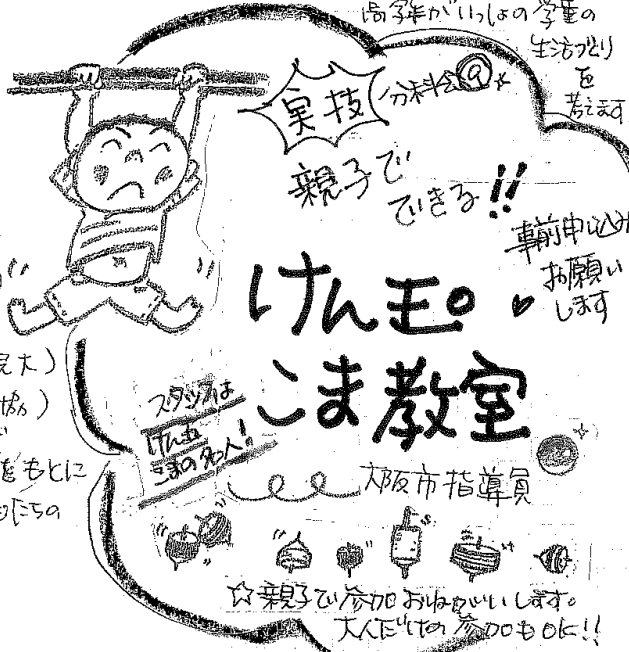 高学年がいっしょの学童の
生活づくり
を
考えます
実技
分科会⑨
親子で
できる!!
事前申し込み
お願い
します
けん玉。
こま教室
スタッフは
けん玉
こまの名人!
大阪市指導員
をもとに
たちの
☆親子で参加おねがいします。
大人だけの参加もOK!!